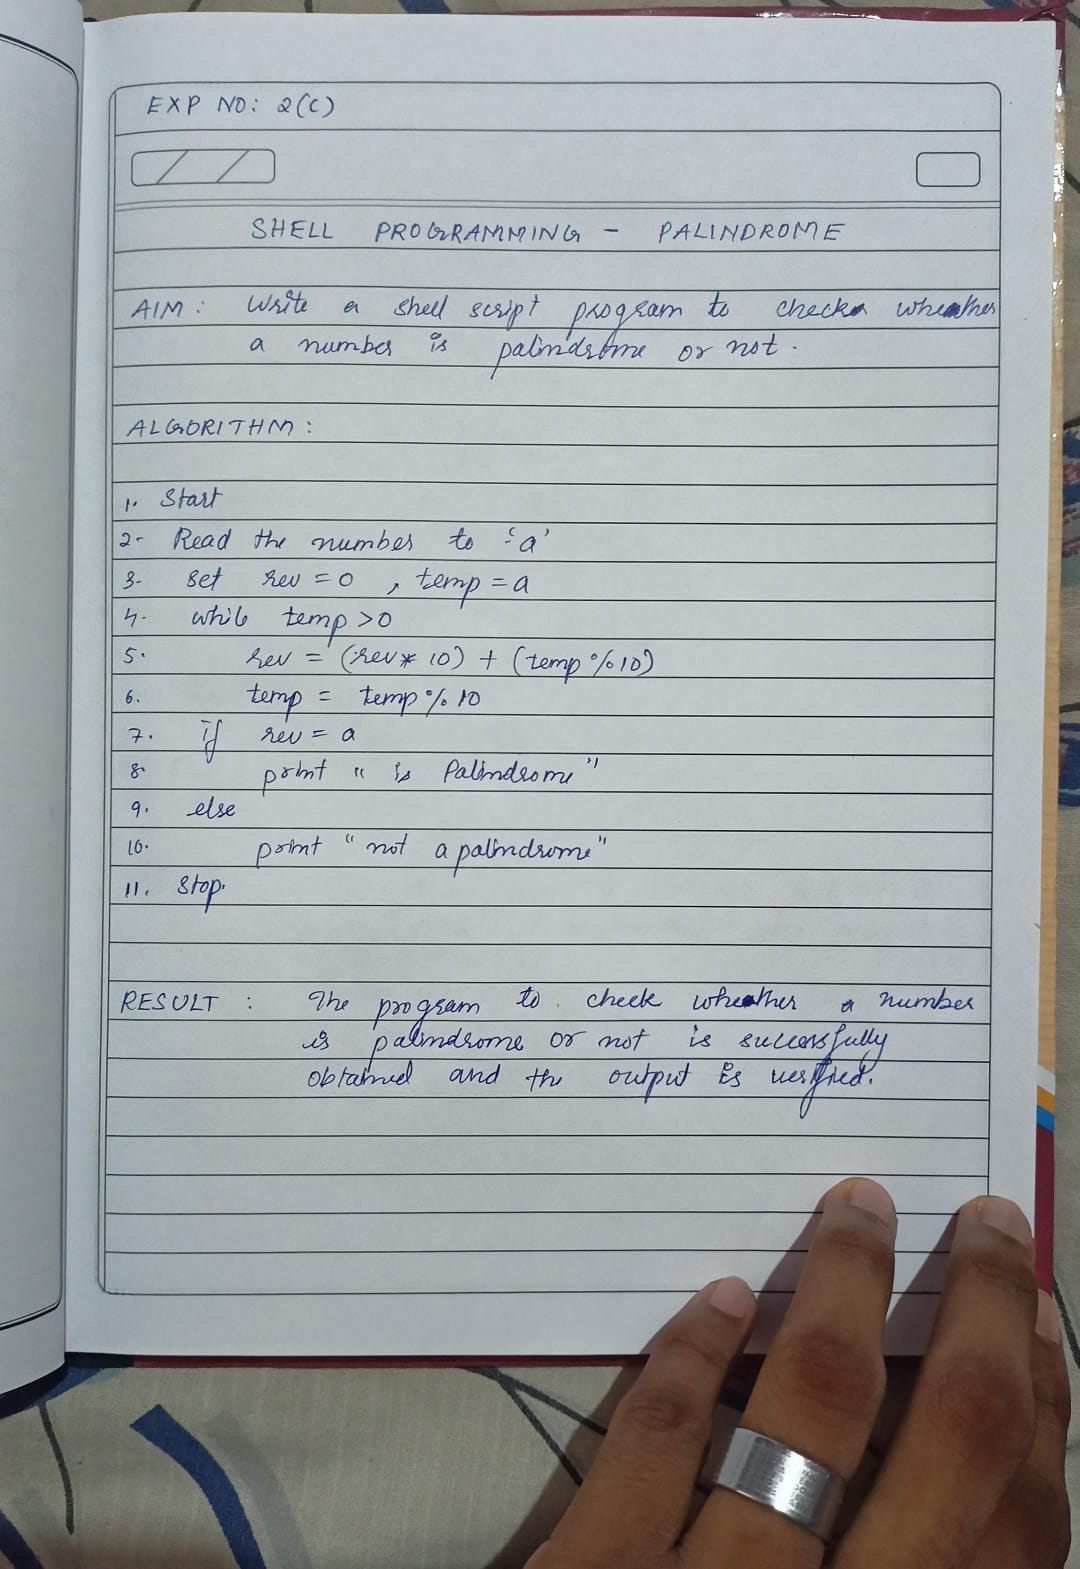 EXP NO: 2(C)
SHELL PROGRAMMING - PALINDROME
AIM: Write a shell script program to check wheather
a number is palindrome or not.
ALGORITHM:
1. Start
2- Read the number to 'a'
3- set rev = 0 , temp = a
4- while temp > 0
5. rev = (rev * 10) + (temp % 10)
6. temp = temp % 10
7. if rev = a
8. print " is Palindrome"
9. else
10. print " not a palindrome"
11. Stop.
RESULT : The program to check wheather a number
is palindrome or not is successfully
obtained and the output is verified.